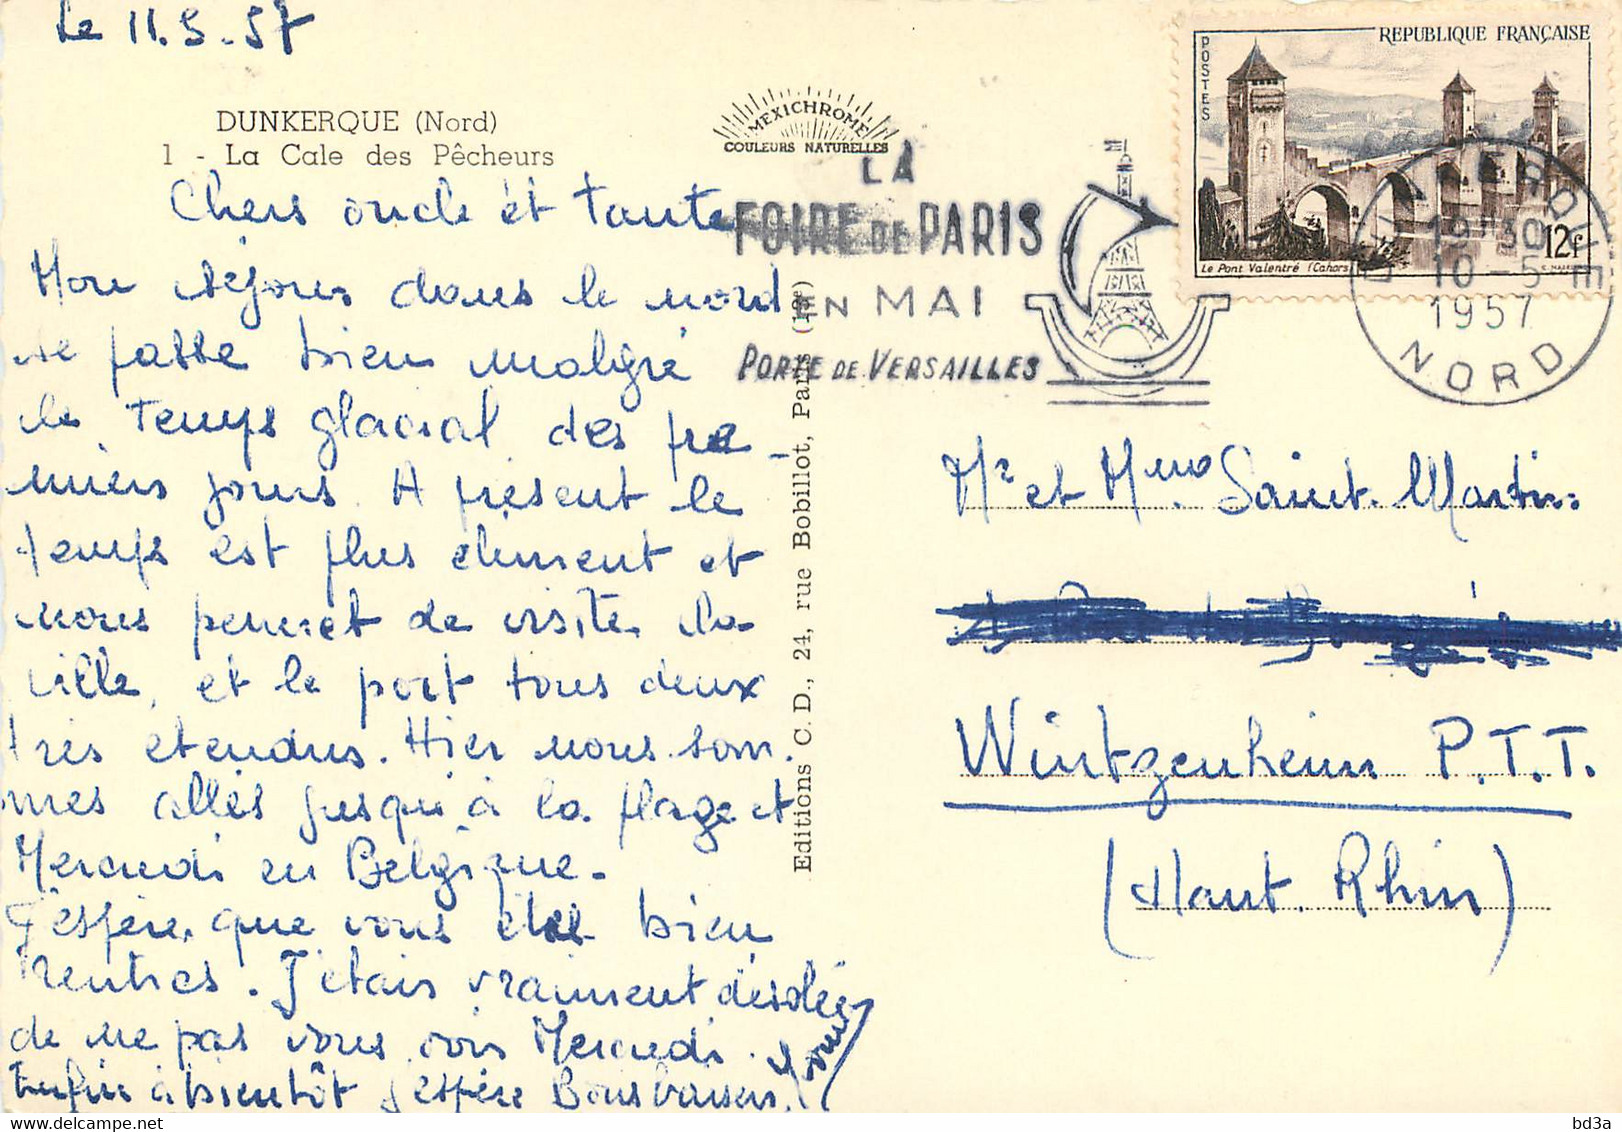 Le 11.5.57
DUNKERQUE (Nord)
1 - La Cale des Pêcheurs
Chers oncle et tante
Mon séjour dans le nord
se passe bien malgré
le temps glacial des pre-
miers jours. A présent le
temps est plus clément et
nous permet de visiter la
ville, et le port tous deux
très etendus. Hier nous som.
mes allés jusqu'à la plage et
Mercredi en Belgique.
J'espère que vous etes bien
rentrés. J'étais vraiment désolée
de ne pas vous voir Mercredi.
Enfin à bientôt j'espère Bons baisers.
MEXICHROME
COULEURS NATURELLES
Editions C. D., 24, rue Bobillot, Paris (13e)
LA
FOIRE DE PARIS
EN MAI
PORTE DE VERSAILLES
REPUBLIQUE FRANÇAISE
POSTES
Le Pont Valentré (Cahors
12f
DUNKERQUE
19H30
10-5
1957
NORD
Mr et Mme Saint. Martin
Wintzenheim P.T.T.
(Haut. Rhin)
bd3a